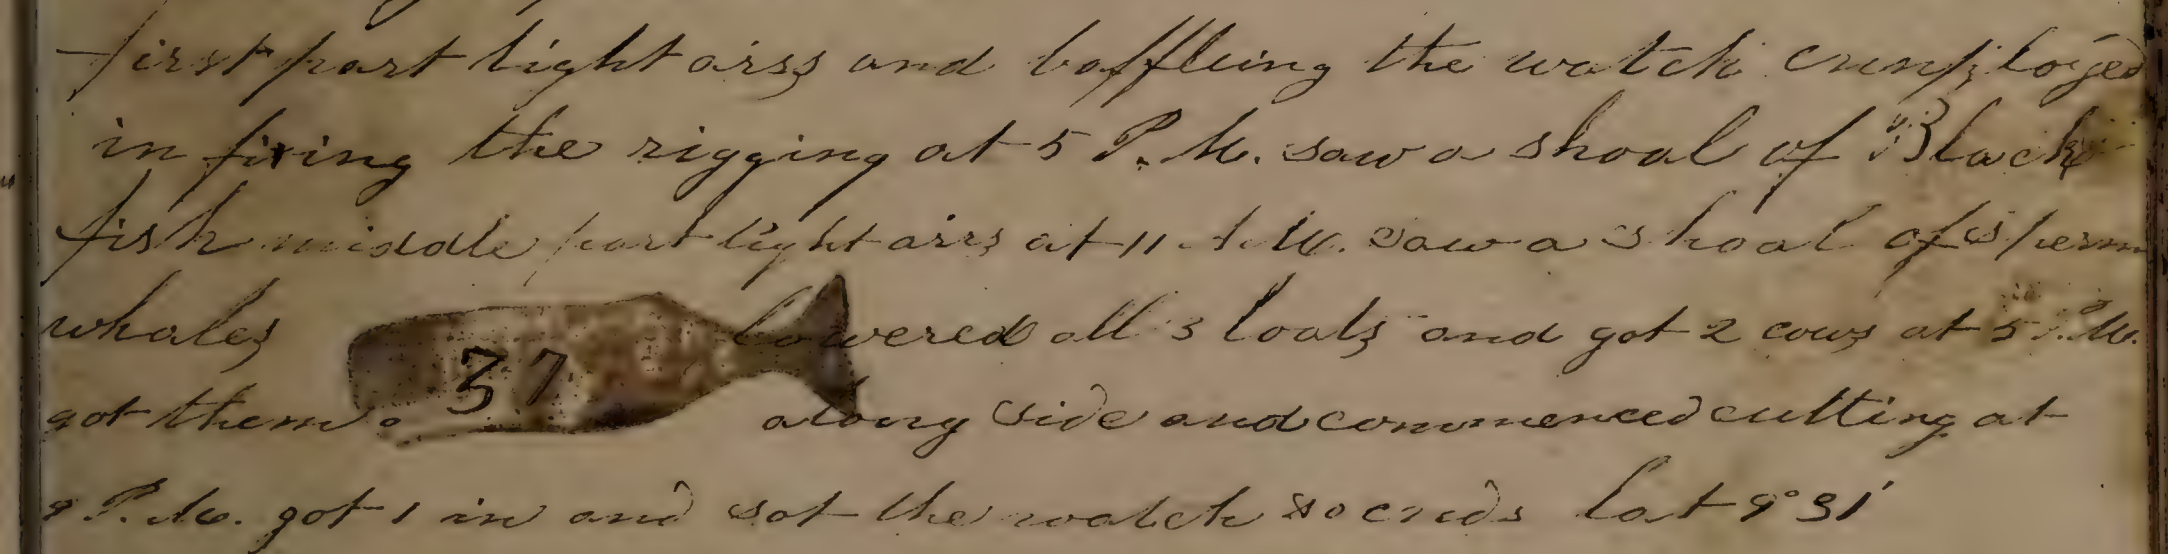 first part light airs and baffling the watch employed
in fixing the rigging at 5 P. M. saw a shoal of Black
fish middle part light airs at 11 A. M. saw a shoal of sperm
whales lowered all 3 boats and got 2 cows at 5 P. M.
37
got them along side and commenced cutting at
P. M. got 1 in and sot the watch so ends Lat 9° 31'